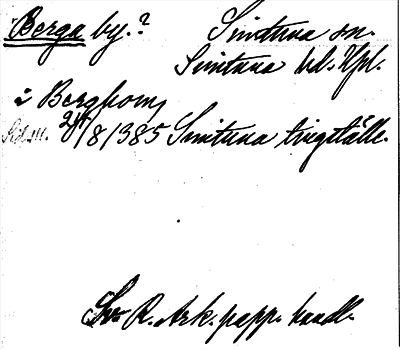 Berga by.? Simtuna sn.
Simtuna hd. Upl.
i Berghom,
Sd.m. 24/8 1385 Simtuna tingställe.
Sv. R. Ark. papp. handl.